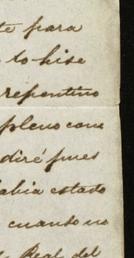 te para
lo hise
repentino
pleno con
diré pues
abia estado
cuando no
Real del